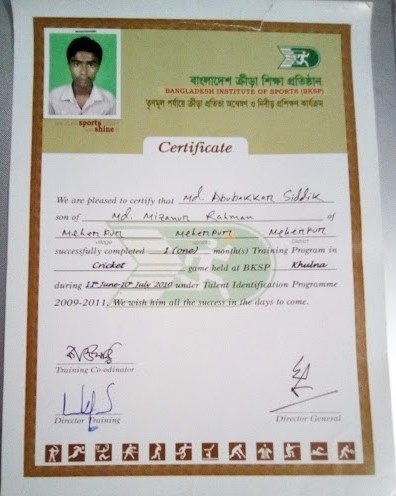 বাংলাদেশ ক্রীড়া শিক্ষা প্রতিষ্ঠান
BANGLADESH INSTITUTE OF SPORTS (BKSP)
তৃণমূল পর্যায়ে ক্রীড়া প্রতিভা অন্বেষণ ও নিবিড় প্রশিক্ষণ কার্যক্রম
sports
shine
Certificate
We are pleased to certify that Md. Abubakkar Siddik
son of Md. Mizanur Rahman of
Meherpur Meherpur Meherpur
village District
successfully completed 1 (one) month(s) Training Program in
Cricket game held at BKSP Khulna
during 11th June-10th July 2010 under Talent Identification Programme
2009-2011. We wish him all the success in the days to come.
Training Co-odinator
Director Training Director General